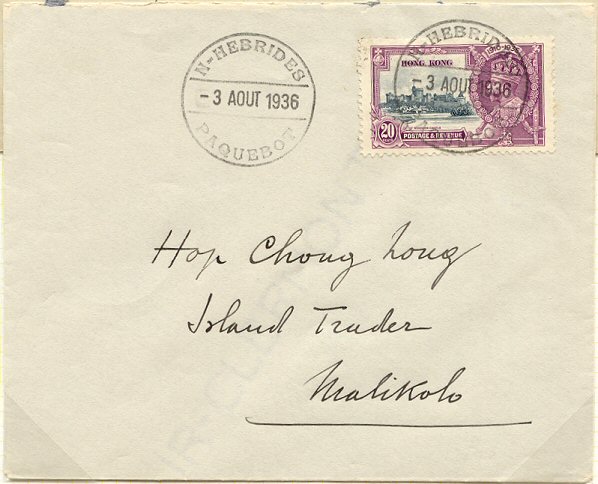 N-HEBRIDES
-3 AOUT 1936
PAQUEBOT
N-HEBRIDES
-3 AOUT 1936
HONG KONG
20
POSTAGE & REVENUE
Hop Chong Long
Island Trader
Malikolo